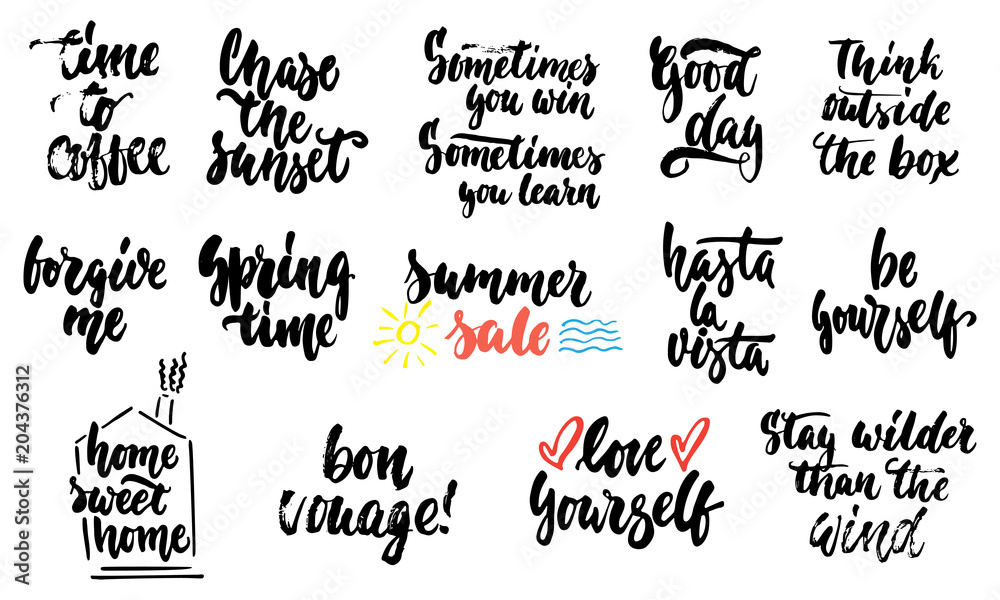 time
to
coffee
Chase
the
sunset
Sometimes
you win
Sometimes
you learn
Good
day
Think
outside
the box
forgive
me
Spring
time
summer
sale
hasta
la
vista
be
yourself
home
sweet
home
bon
vouage!
love
yourself
Stay wilder
than the
wind
Adobe Stock | #204376312